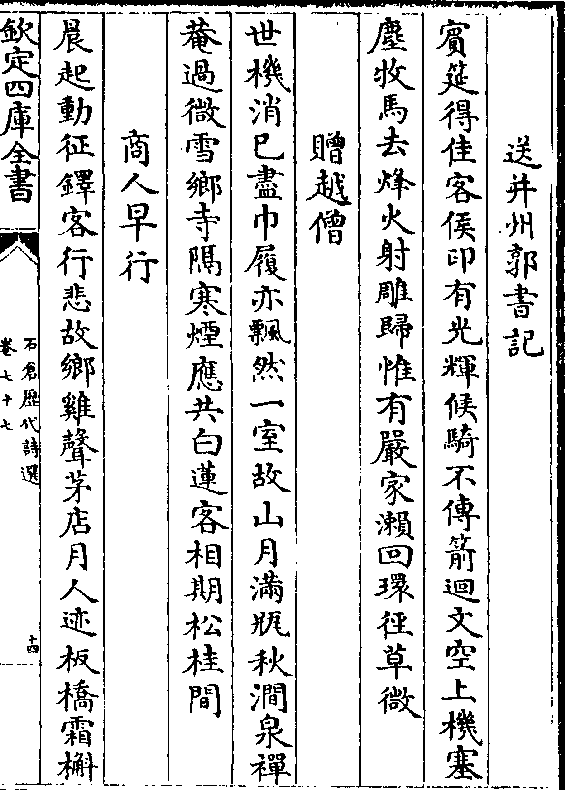 送并州郭書記
賓筵得佳客侯印有光輝候騎不傳箭迴文空上機塞
塵牧馬去烽火射雕歸惟有嚴家瀨回環徑草微
贈越僧
世機消已盡巾履亦飄然一室故山月滿瓶秋澗泉禪
菴過微雪鄉寺隔寒煙應共白蓮客相期松桂間
商人早行
晨起動征鐸客行悲故鄉雞聲茅店月人迹板橋霜槲
欽定四庫全書
石倉歷代詩選
卷七十七
十四